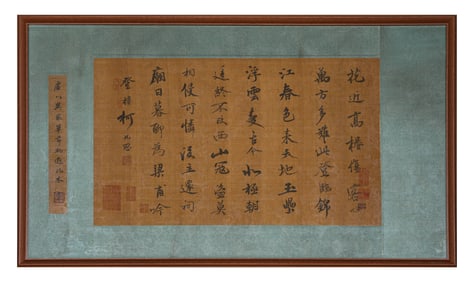 花近高樓傷客心
萬方多難此登臨錦
江春色來天地玉壘
浮雲變古今北極朝
廷終不改西山寇盜莫
相侵可憐後主還祠
廟日暮聊為梁甫吟
登樓 柯九思